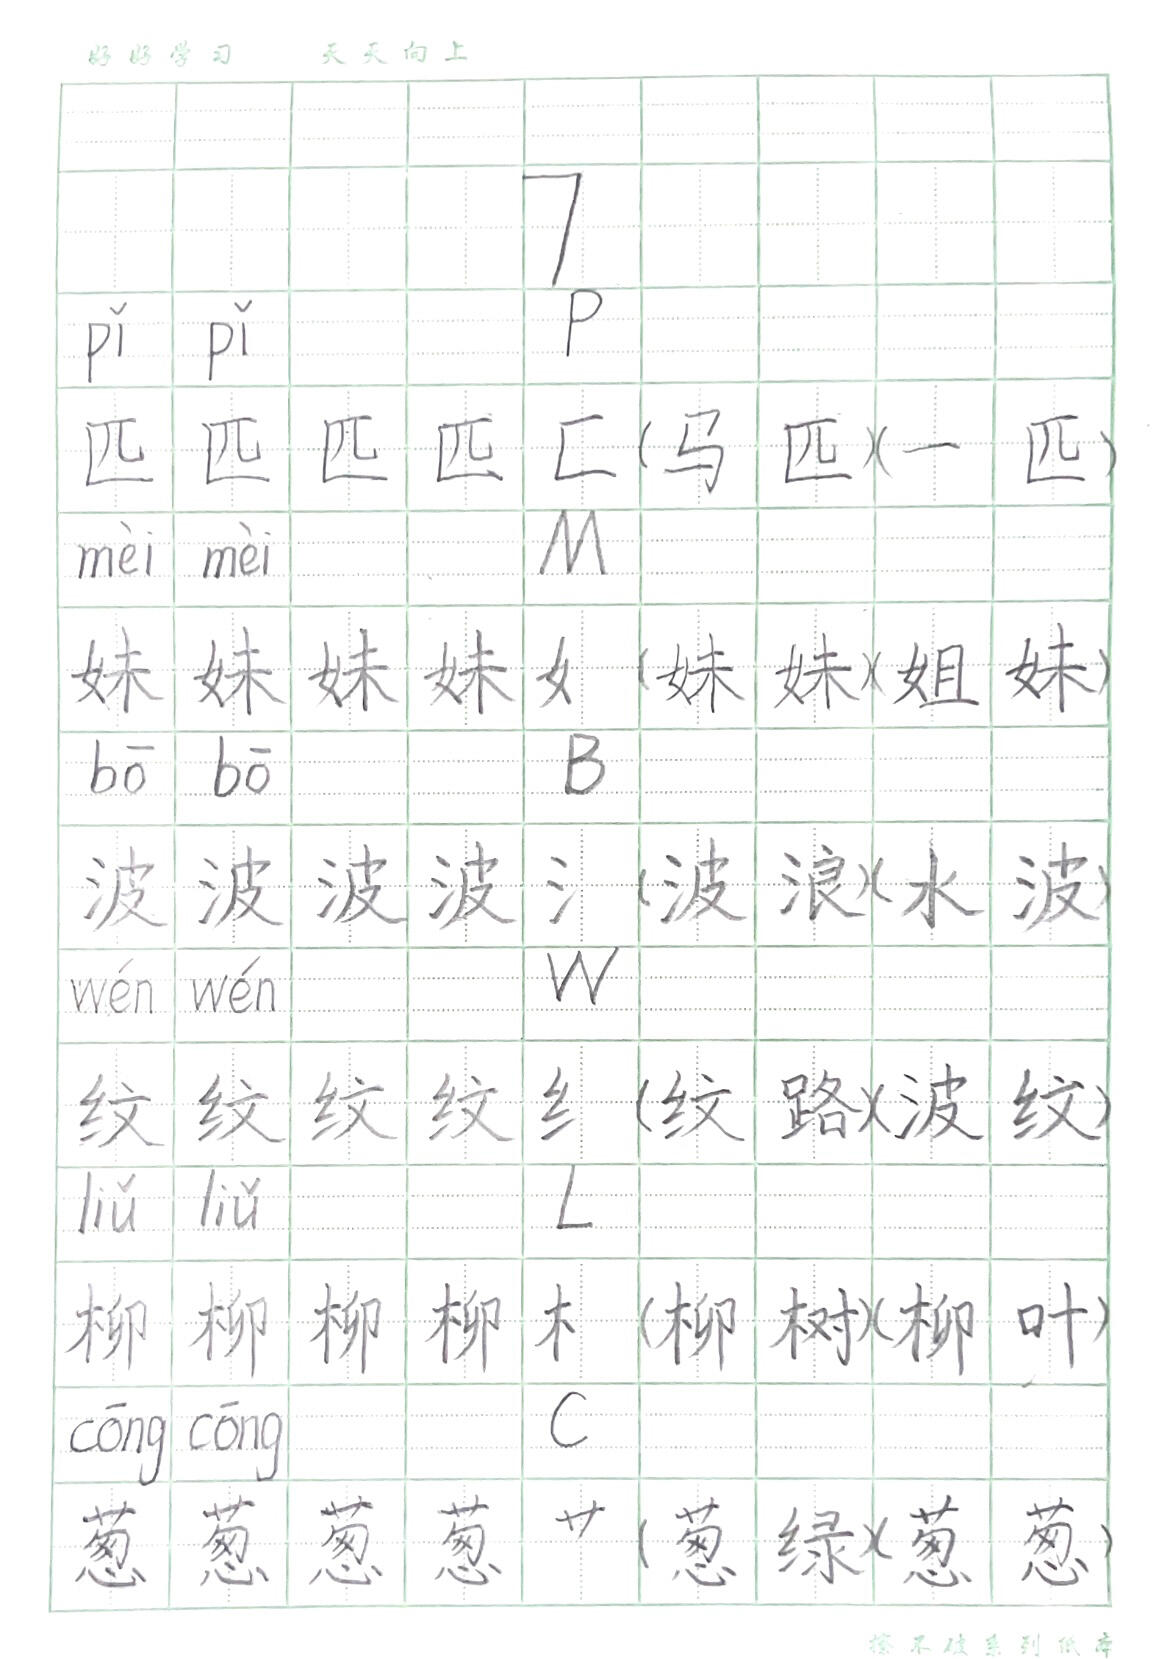 好好学习 天天向上
7
pǐ pǐ P
匹 匹 匹 匹 匚 (马 匹)(一 匹)
mèi mèi M
妹 妹 妹 妹 女 (妹 妹)(姐 妹)
bō bō B
波 波 波 波 氵 (波 浪)(水 波)
wén wén W
纹 纹 纹 纹 纟 (纹 路)(波 纹)
liǔ liǔ L
柳 柳 柳 柳 木 (柳 树)(柳 叶)
cōng cōng C
葱 葱 葱 葱 艹 (葱 绿)(葱 葱)
擦不破系列纸本